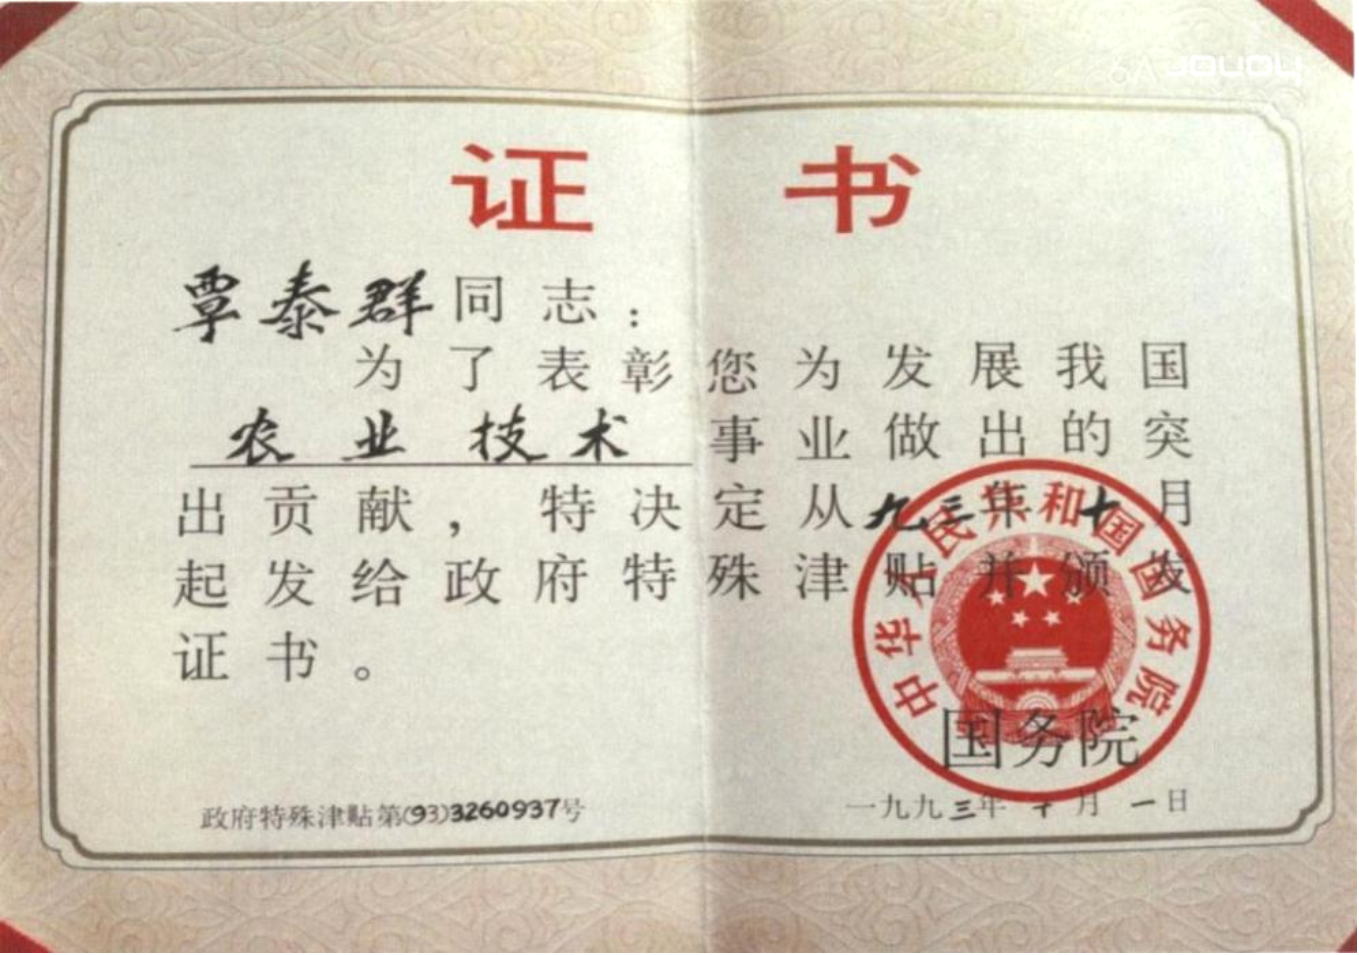 证书
覃泰群同志：
为了表彰您为发展我国
农业技术事业做出的突
出贡献，特决定从九三年十月
起发给政府特殊津贴并颁发
证书。
中华人民共和国国务院
国务院
政府特殊津贴第(93)3260937号
一九九三年十月一日